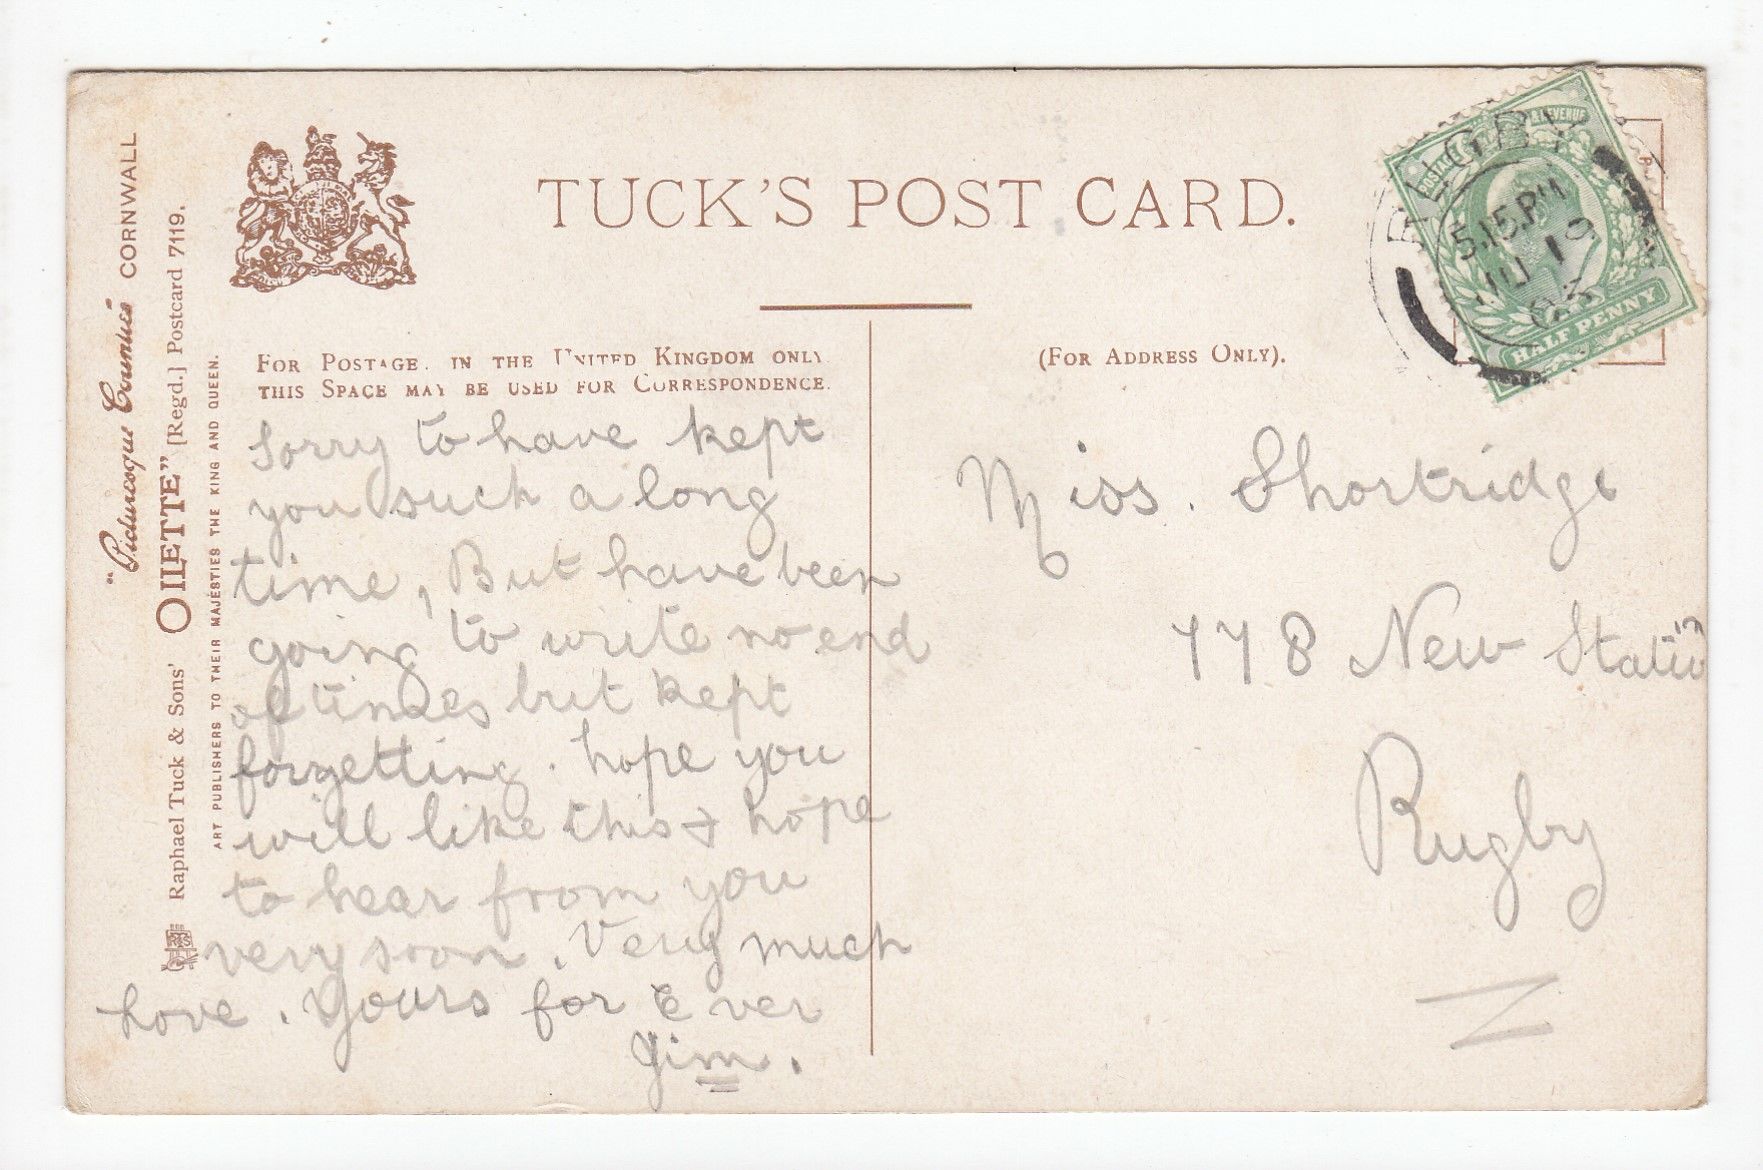 "Picturesque Counties CORNWALL
Raphael Tuck & Sons' "OILETTE" [Regd.] Postcard 7119.
ART PUBLISHERS TO THEIR MAJESTIES THE KING AND QUEEN.
TUCK'S POST CARD.
FOR POSTAGE IN THE UNITED KINGDOM ONLY
THIS SPACE MAY BE USED FOR CORRESPONDENCE.
(FOR ADDRESS ONLY).
POSTAGE & REVENUE
HALF PENNY
RUGBY
5.15.PM
Sorry to have kept
you such a long
time, But have been
going to write no end
of times but kept
forgetting. hope you
will like this & hope
to hear from you
very soon. Very much
love. Yours for Ever
Jim.
Miss. Shortridge
178 New Statio
Rugby